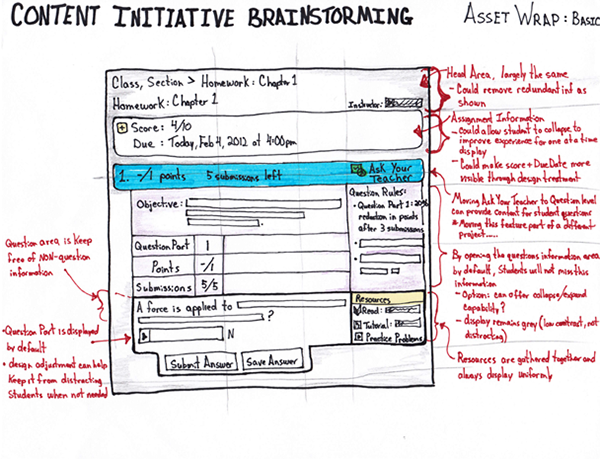 CONTENT INITIATIVE BRAINSTORMING
ASSET WRAP: BASIC
Class, Section > Homework: Chapter 1
Homework: Chapter 1
Instructor:
+ Score: 4/10
Due: Today, Feb 4, 2012 at 4:00pm
1. -/1 points 5 submissions left
Ask Your
Teacher
Objective:
Question Part 1
Points -/1
Submissions 5/5
Question Rules:
• Question Part 1: 20%
reduction in points
after 3 submissions
A force is applied to
?
N
Submit Answer
Save Answer
Resources
Read:
Tutorial:
Practice Problems
Head Area, largely the same
- Could remove redundant info as
shown
Assignment Information
- Could allow student to collapse to
improve experience for one at a time
display
- Could make score + Due Date more
visible through design treatment
Moving Ask Your Teacher to Question level
can provide Context for student questions
* Moving this feature part of a different
project.....
By opening the questions information area
by default, Students will not miss this
information
- Options can offer collapse/expand
capability?
- display remains grey (low contrast, not
distracting)
Resources are gathered together and
always display uniformly
Question area is keep
free of NON-question
information
• Question Part is displayed
by default
• design adjustment can help
Keep it from distracting
Students when not needed